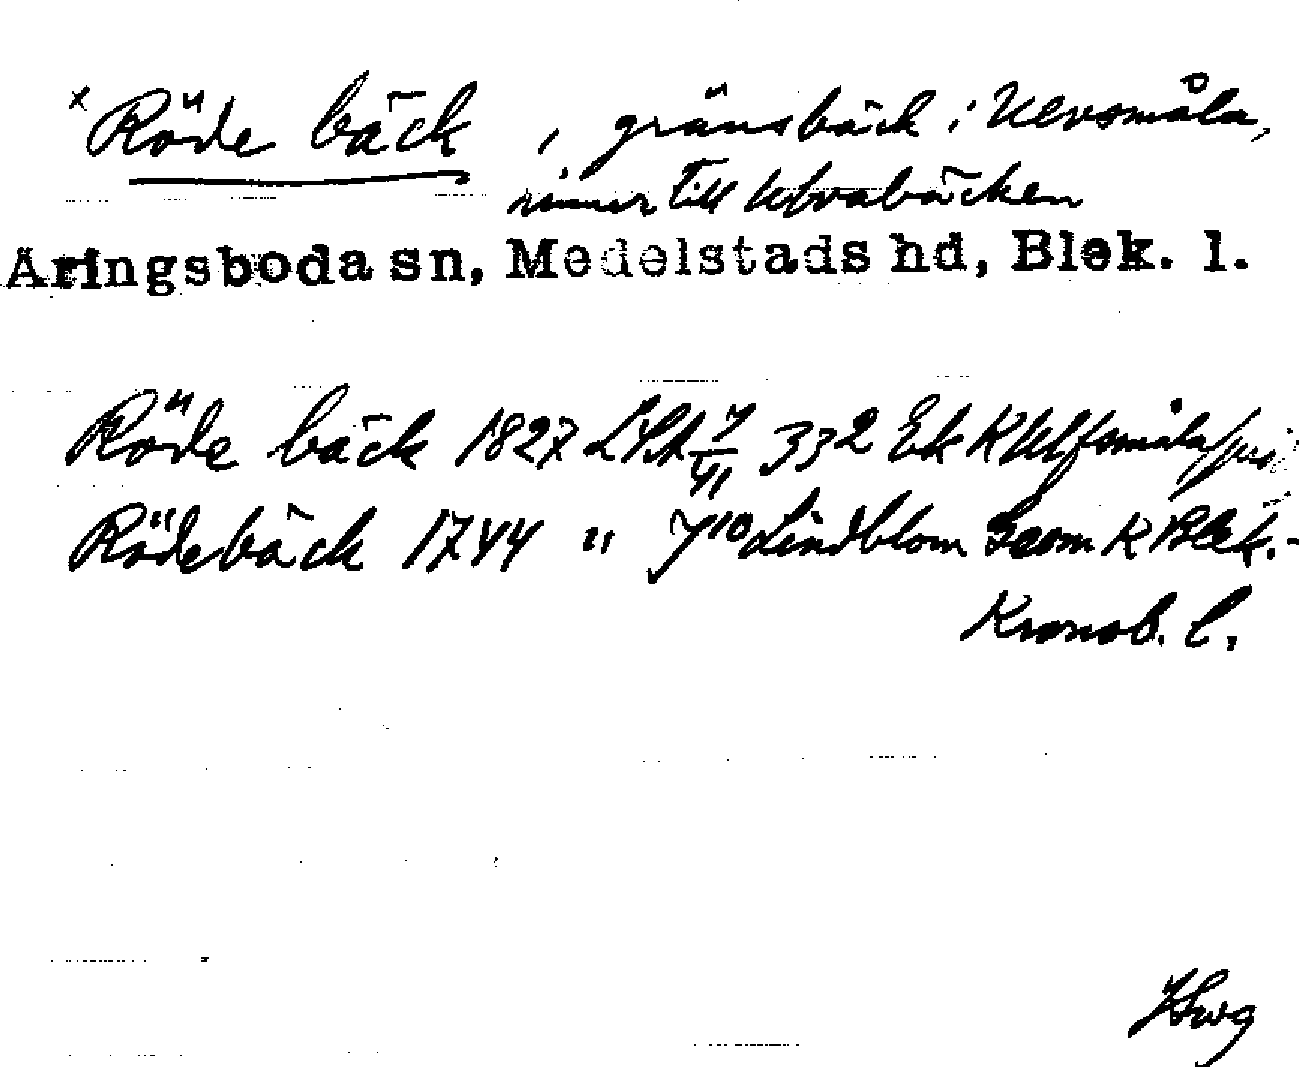 x Röde bäck, gränsbäck i Ulvsmåla,
rinner till Ulvabäcken
Äringsboda sn, Medelstads hd, Blek. l.
Röde bäck 1827 LSA 332 Ek K Ulfsmåla
Rödebäck 1744 " Lindblom Geom K Blek.-
Kronob. l.